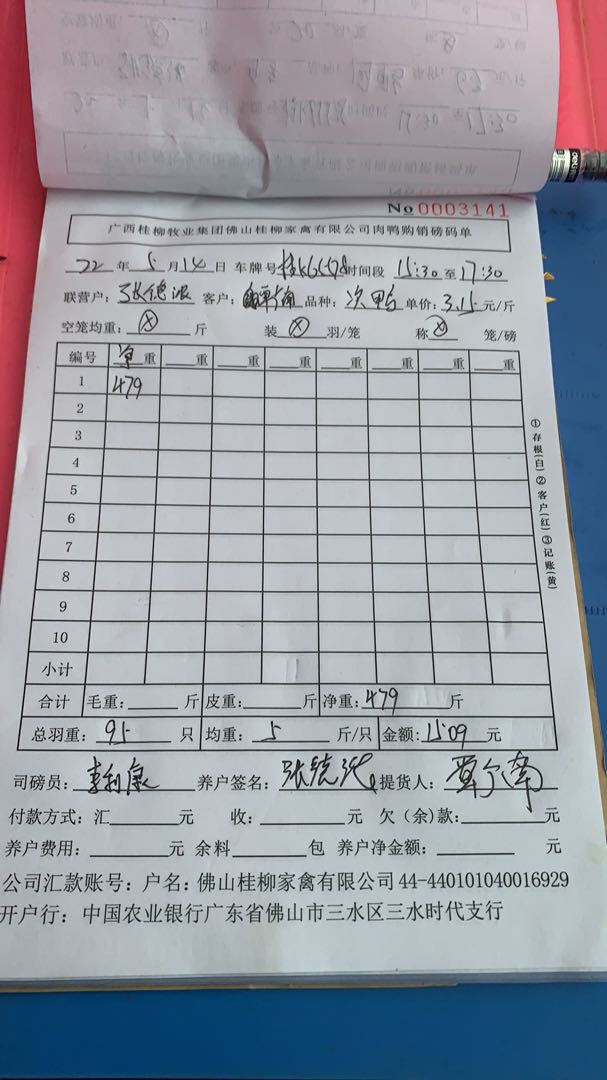 No 0003141
广西桂柳牧业集团佛山桂柳家禽有限公司肉鸭购销磅码单
22 年 5 月 14 日 车牌号 时间段 15:30 至 17:30
联营户： 客户： 品种：次鸭 单价：3.15 元/斤
空笼均重：⊗ 斤 装 ⊗ 羽/笼 称 ⊗ 笼/磅
编号 净重 重 重 重 重 重 重 重
1 479
2
3
4
5
6
7
8
9
10
小计
合计 毛重： 斤 皮重： 斤 净重：479 斤
总羽重：95 只 均重：5 斤/只 金额：1509 元
司磅员：李利康 养户签名： 提货人：
付款方式：汇 元 收： 元 欠（余）款： 元
养户费用： 元 余料 包 养户净金额： 元
公司汇款账号：户名：佛山桂柳家禽有限公司 44-440101040016929
开户行：中国农业银行广东省佛山市三水区三水时代支行
①存根(白)②客户(红)③记账(黄)